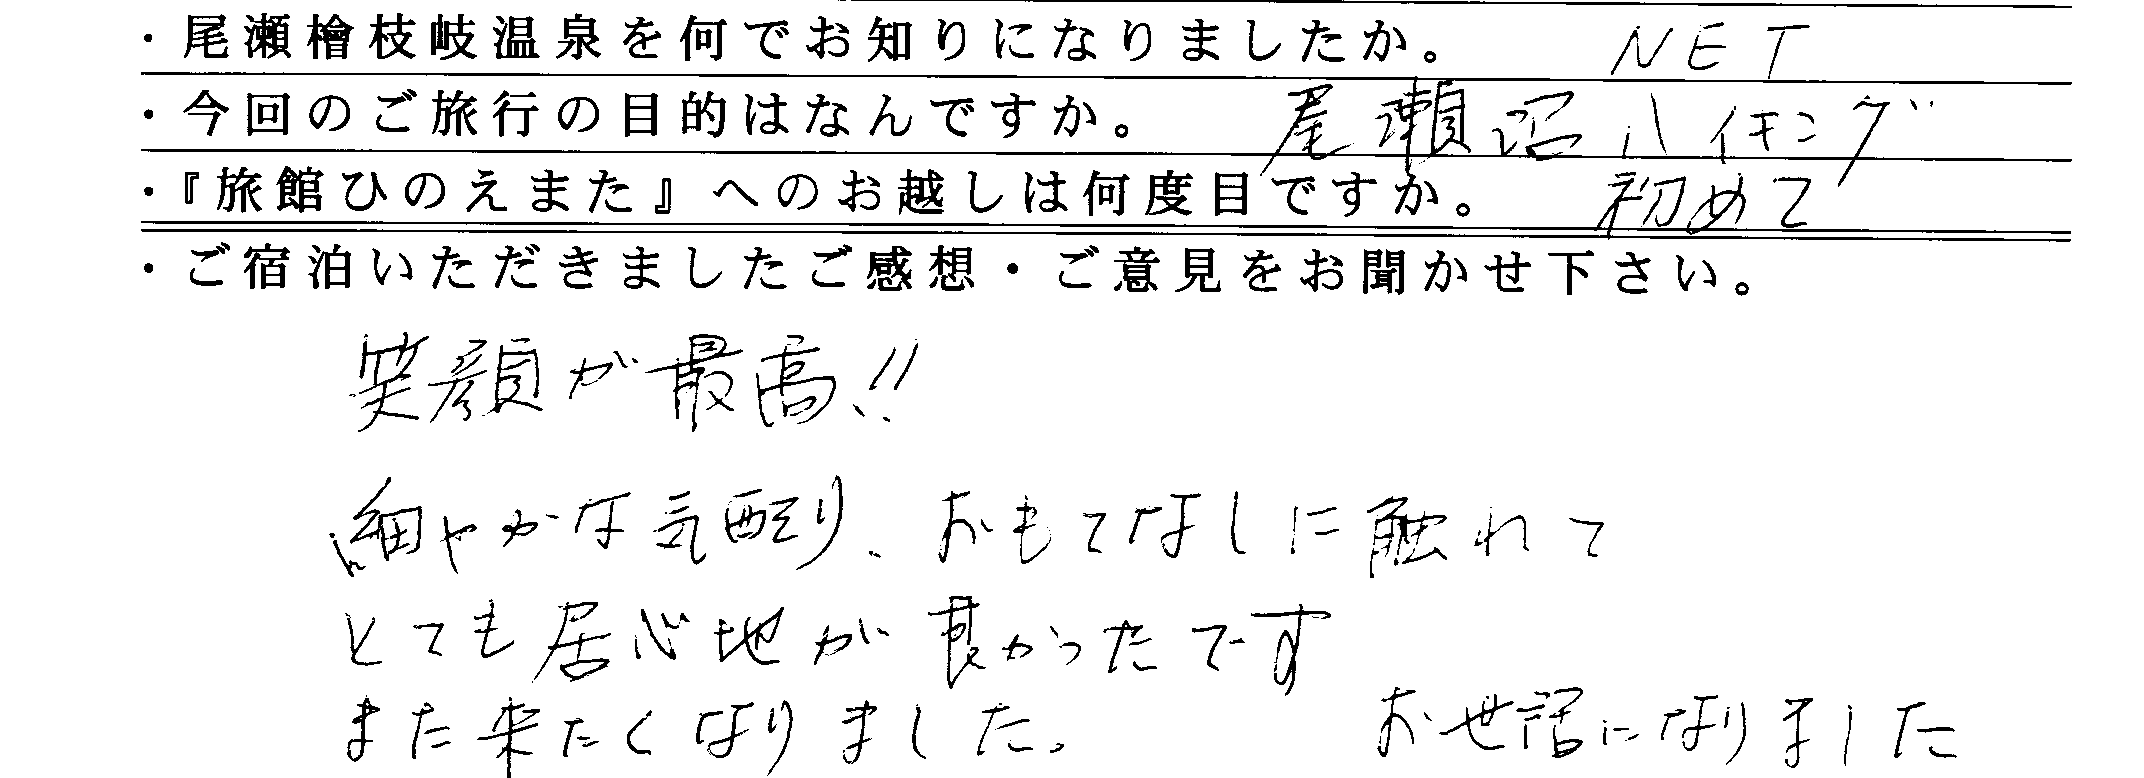 ・尾瀬檜枝岐温泉を何でお知りになりましたか。 NET
・今回のご旅行の目的はなんですか。 尾瀬沼ハイキング
・『旅館ひのえまた』へのお越しは何度目ですか。 初めて
・ご宿泊いただきましたご感想・ご意見をお聞かせ下さい。
笑顔が最高!!
細やかな気配り、おもてなしに触れて
とても居心地が良かったです
また来たくなりました。 お世話になりました